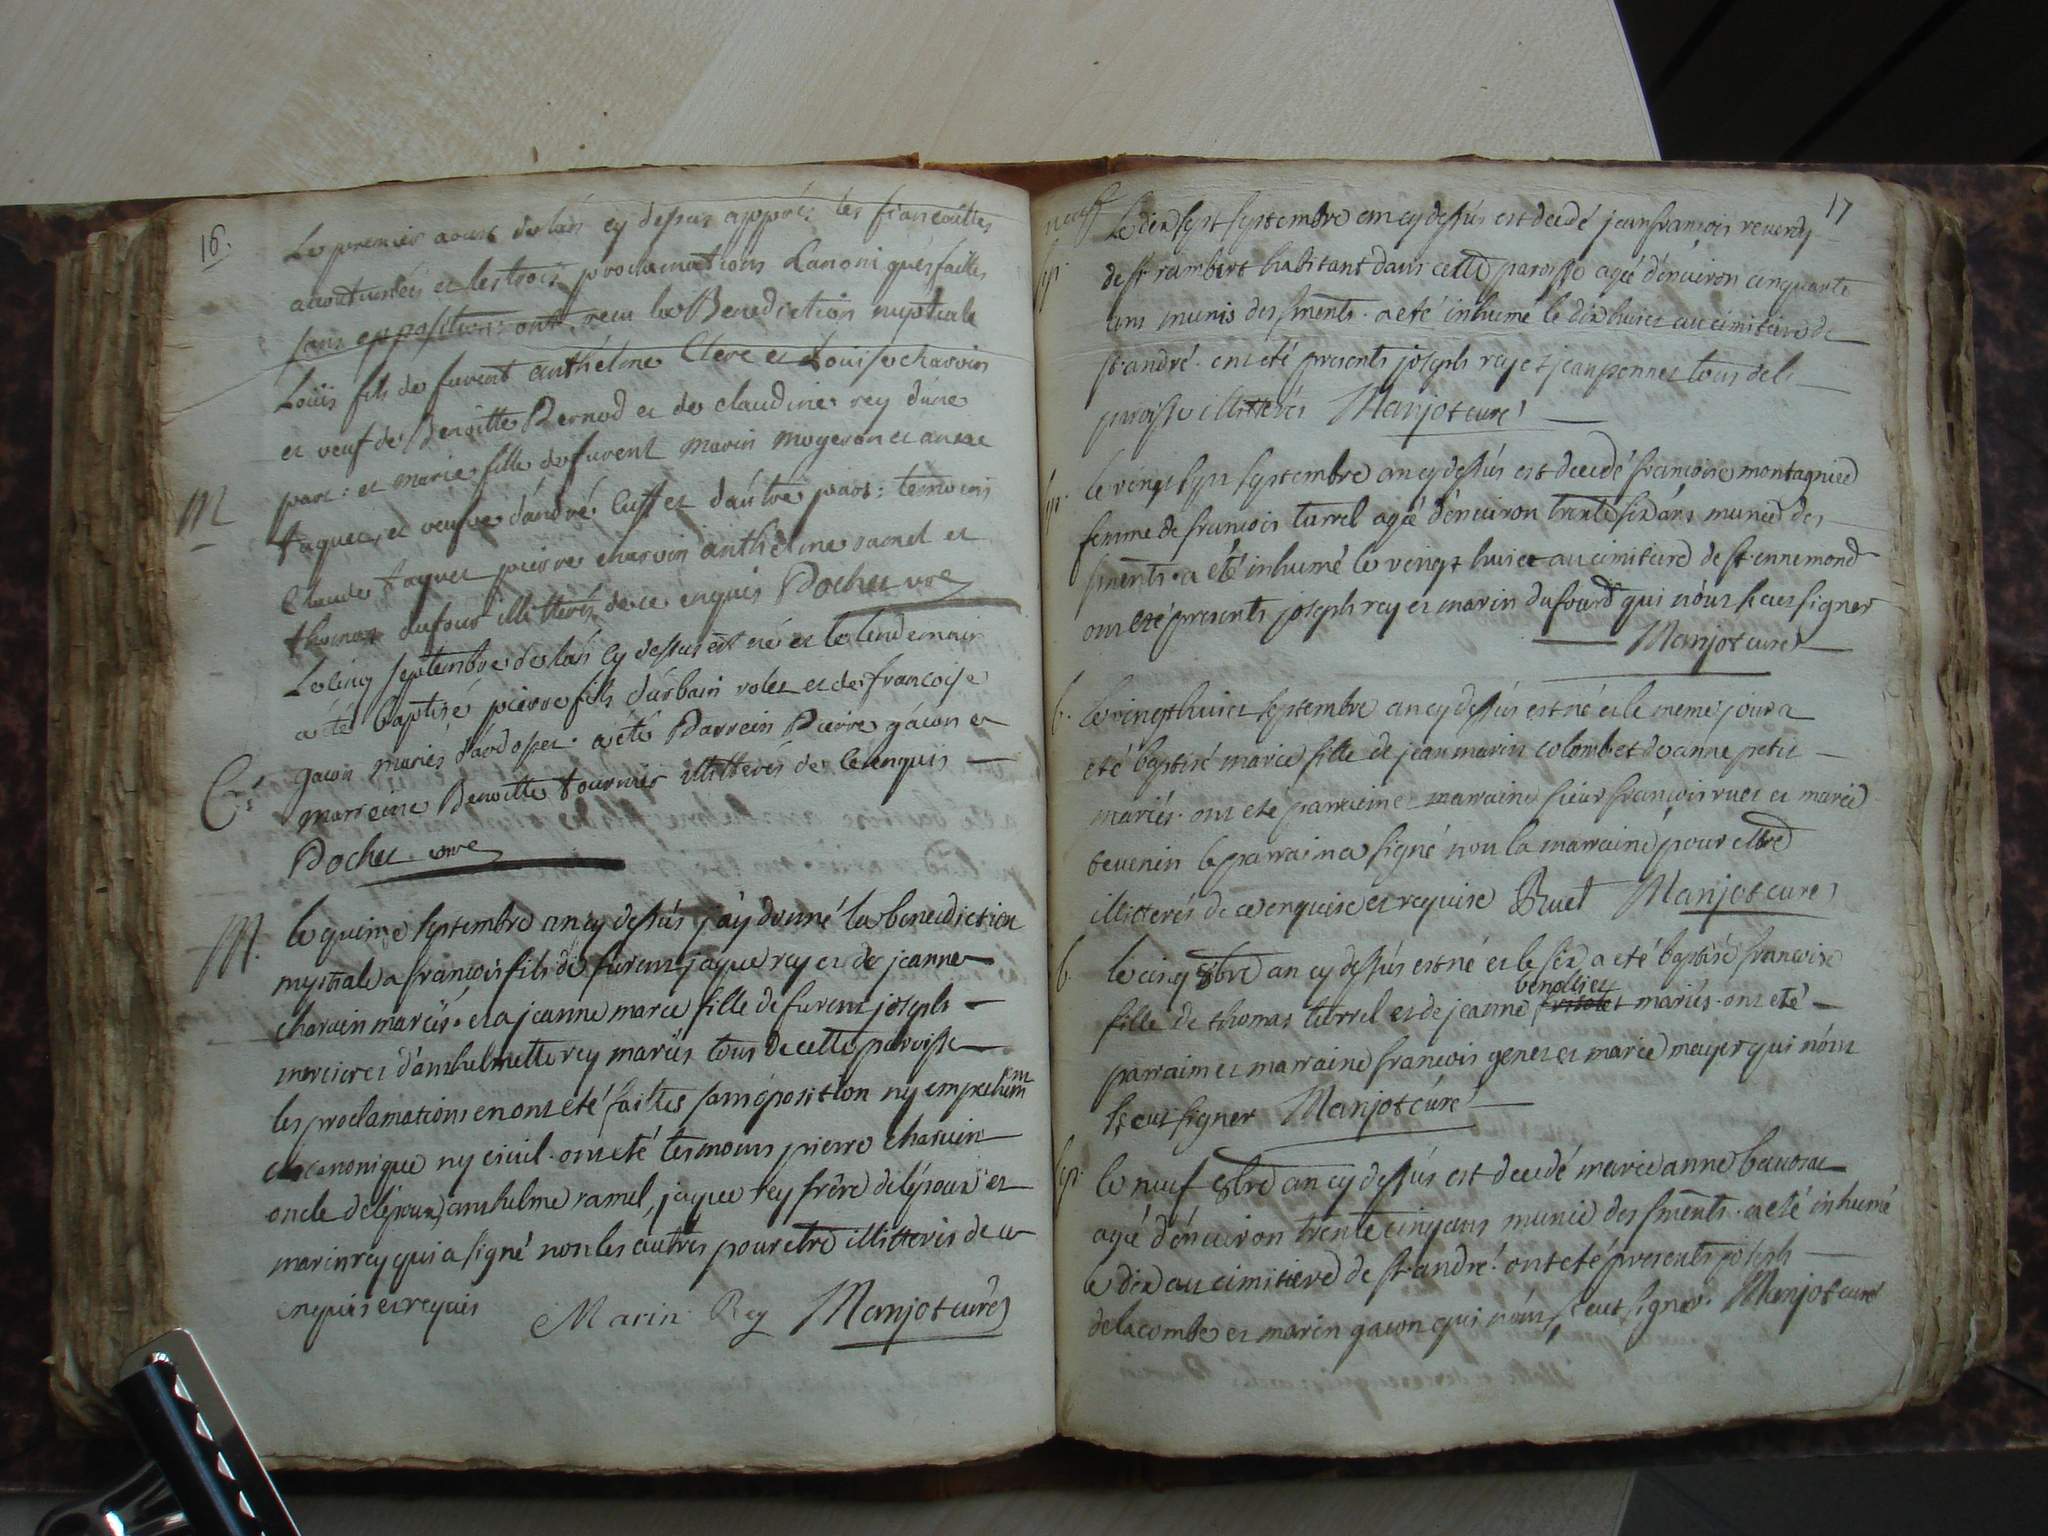 16.
Le premier aoust de lan cy dessus apprés les fiancailles
accoutumées et les trois proclamations Canoniques faittes
sans oppositions: ont recu la Benediction nuptiale
Loüis fils de fuvent anthelme Clerc et Loüise charvin
et veuf de Benoitte Bernod et de claudine rey d'une
part: et marie fille de fuvent marin mogeron et anne
M
taquet, et veufve d'andré Cuffet d'autre part: temoins
Claude taquet pierre charvin anthelme ramel et
thomas dufour illitterés de ce enquis Dochet vre
Le cinq septembre de lan cy dessus est né et le lendemain
a été baptisé pierre fils d'urbain volet et de francoise
gacon mariés d'ardosset. a été Parrein Pierre gacon et
marreine Benoitte tournier illitterés de ce enquis
Dochet vre
M. le quinze septembre an cy dessus j'ay donné la benediction
nuptiale a françois fils de fuvent jaque rey et de jeanne
charvin mariés. et a jeanne marie fille de fuvent joseph
mercier et d'anthelmette rey mariés tous de cette paroisse
les proclamations en ont eté faittes sans oposition ny empechem
canonique ny civil. ont eté tesmoins pierre charvin
oncle de lépoux, anthelme ramel, jaque rey frère de lépoux et
marin rey qui a signé non les autres pour etre illitterés de ce
enquis et requis Marin Rey Manjot curé
17
neuf
Le dix sept septembre an cy dessus est decedé jean francois reverdy
sp. de st rambert habitant dans cette paroisse agé d'environ cinquante
ans munis des sments. a eté inhumé le dix huict au cimitiere de
st andré. ont eté presents joseph rey et jean pernet tous de la
paroisse illitterés Manjot curé
sp. le vingt sept septembre an cy dessus est decedé francoise montagnied
femme de francois turrel agée d'environ trente six ans munie des
sments. a été inhumé le vingt huict au cimitiere de st ennemond
ont eté presents joseph rey et marin dufourd qui n'ont sceu signer
Manjot curé
b. le vingt huict septembre an cy dessus est né et le meme jour a
eté baptisé marie fille de jean marin colomb et de anne petit
mariés. ont eté parraine marraine sieur francois ruet et marie
tevenin le parrain a signé non la marraine pour etre
illitterés de ce enquise et requise Ruet Manjot curé
b. le cinq 8bre an cy dessus est né et le six a eté baptisé francoise
benolliet
fille de thomas turrel et de jeanne mariés. ont eté
parrain et marraine francois genet et marie meyer qui n'ont
sceut signer Manjot curé
sp. le neuf 8bre an cy dessus est decedé marie anne
agée d'environ trente cinq ans munie des sments. a eté inhumé
le dix au cimitiere de st andré. ont eté presents joseph
delacombe et marin gacon qui n'ont sceut signer. Manjot curé